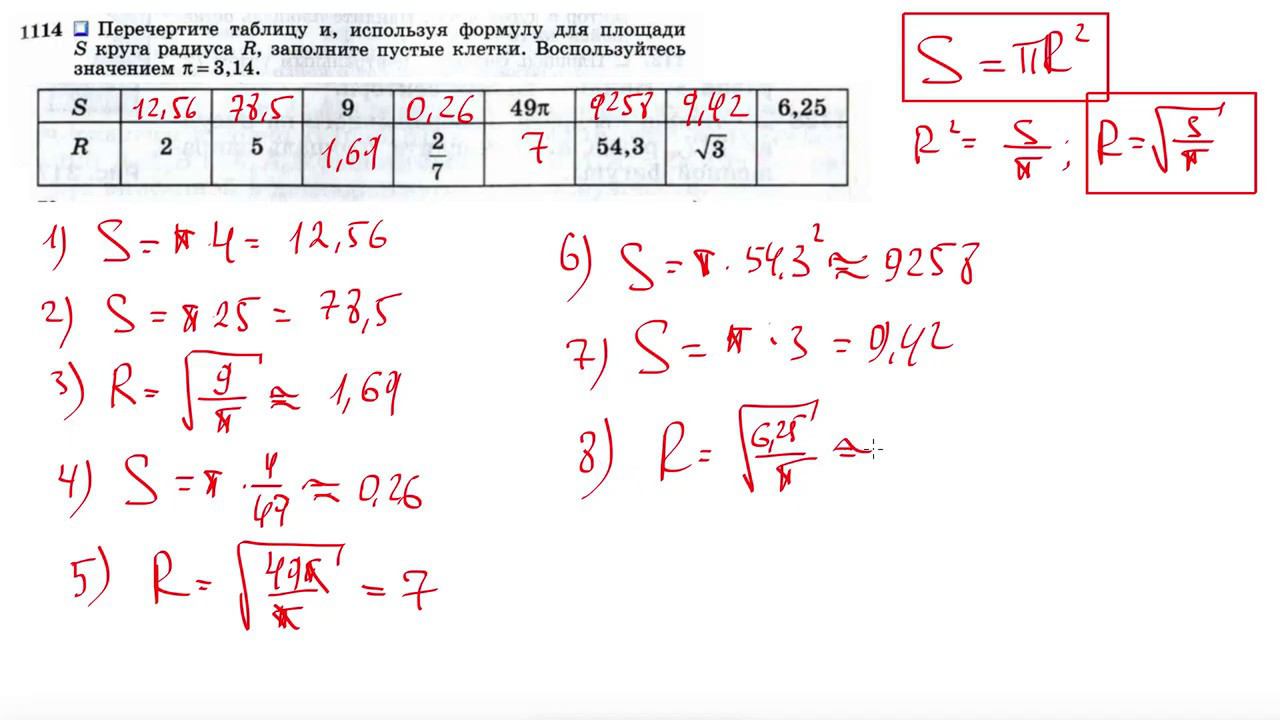 1114 Перечертите таблицу и, используя формулу для площади
S круга радиуса R, заполните пустые клетки. Воспользуйтесь
значением π=3,14.
S 12,56 78,5 9 0,26 49π 9258 9,42 6,25
R 2 5 1,69 2/7 7 54,3 √3
S = πR²
R² = S/π ; R = √(S/π)
1) S = π·4 = 12,56
2) S = π 25 = 78,5
3) R = √(9/π) ≈ 1,69
4) S = π · 4/49 ≈ 0,26
5) R = √(49π/π) = 7
6) S = π · 54,3² ≈ 9258
7) S = π · 3 = 9,42
8) R = √(6,25/π) ≈